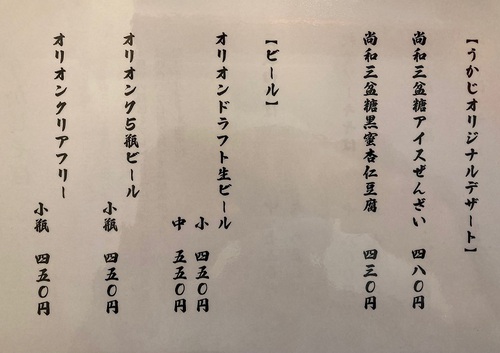 【うかじオリジナルデザート】
尚和三盆糖アイスぜんざい 四八〇円
尚和三盆糖黒蜜杏仁豆腐 四三〇円
【ビール】
オリオンドラフト生ビール 小 四五〇円
中 五五〇円
オリオン75瓶ビール 小瓶 四五〇円
オリオンクリアフリー 小瓶 四五〇円